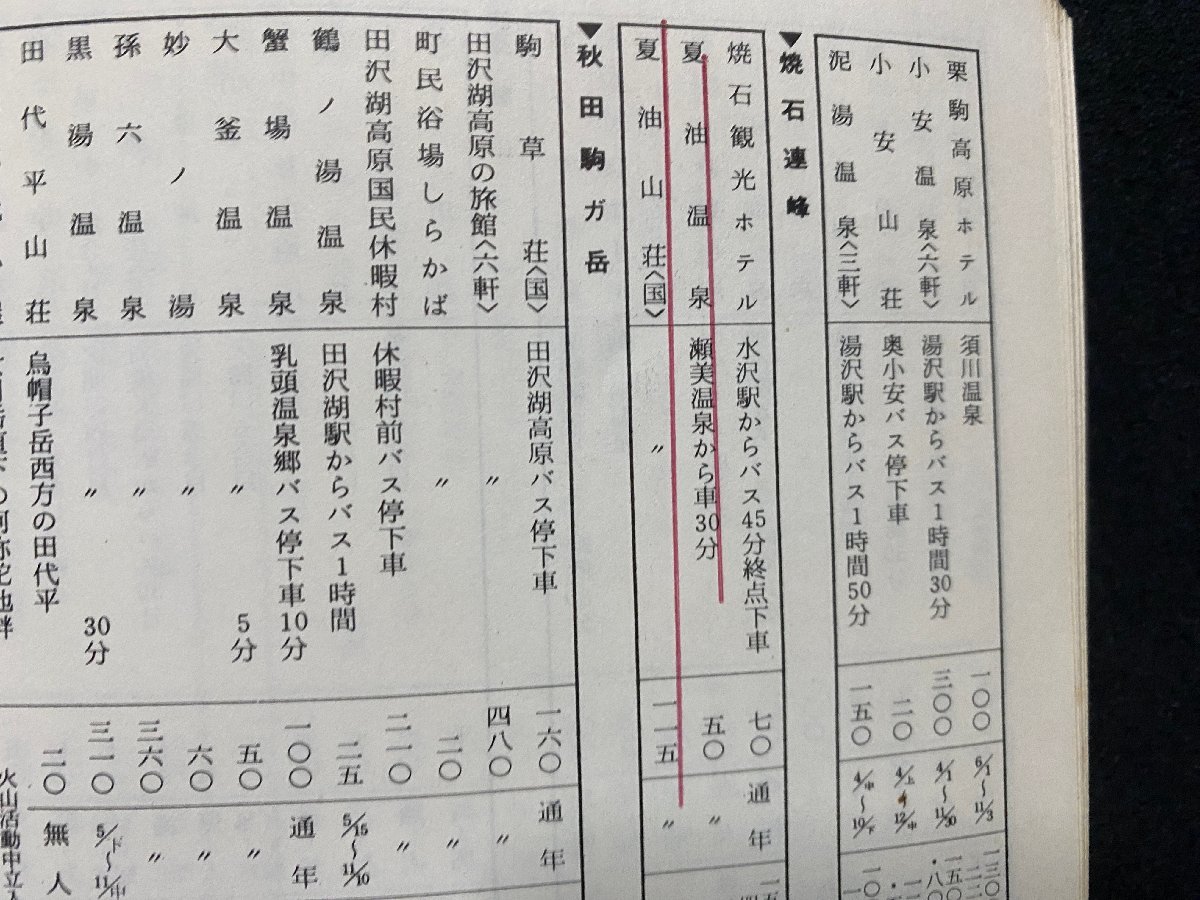 栗駒高原ホテル 須川温泉 一〇〇 6/1〜11/3
小安温泉〈六軒〉 湯沢駅からバス1時間30分 三〇〇 4/1〜11/30
小安山荘 奥小安バス停下車 二〇 4/上〜12/中
泥湯温泉〈三軒〉 湯沢駅からバス1時間50分 一五〇 4/中〜10/下
▼焼石連峰
焼石観光ホテル 水沢駅からバス45分終点下車 七〇 通年
夏油温泉 瀬美温泉から車30分 五〇 〃
夏油山荘〈国〉 〃 一一五 〃
▼秋田駒ガ岳
駒草荘〈国〉 田沢湖高原バス停下車 一六〇 通年
田沢湖高原の旅館〈六軒〉 〃 四八〇 〃
町民浴場しらかば 〃 二〇 〃
田沢湖高原国民休暇村 休暇村前バス停下車 二一〇 〃
鶴ノ湯温泉 田沢湖駅からバス1時間 二五 5/15〜11/10
蟹場温泉 乳頭温泉郷バス停下車10分 一〇〇 通年
大釜温泉 〃 5分 五〇 〃
妙ノ湯 〃 六〇 〃
孫六温泉 〃 三六〇 〃
黒湯温泉 〃 30分 三一〇 5/下〜11/中
田代平山荘 烏帽子岳西方の田代平 二〇 無人
火山活動中立入